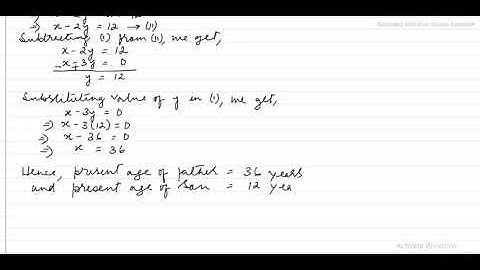 ⇒ x - 2y = 12 → (II)
Subtracting (I) from (II), we get,
x - 2y = 12
- x ∓ 3y = 0
y = 12
Substituting value of y in (I), we get,
x - 3y = 0
⇒ x - 3(12) = 0
⇒ x - 36 = 0
⇒ x = 36
Hence, present age of father = 36 years
and present age of son = 12 yea
Activate Windows